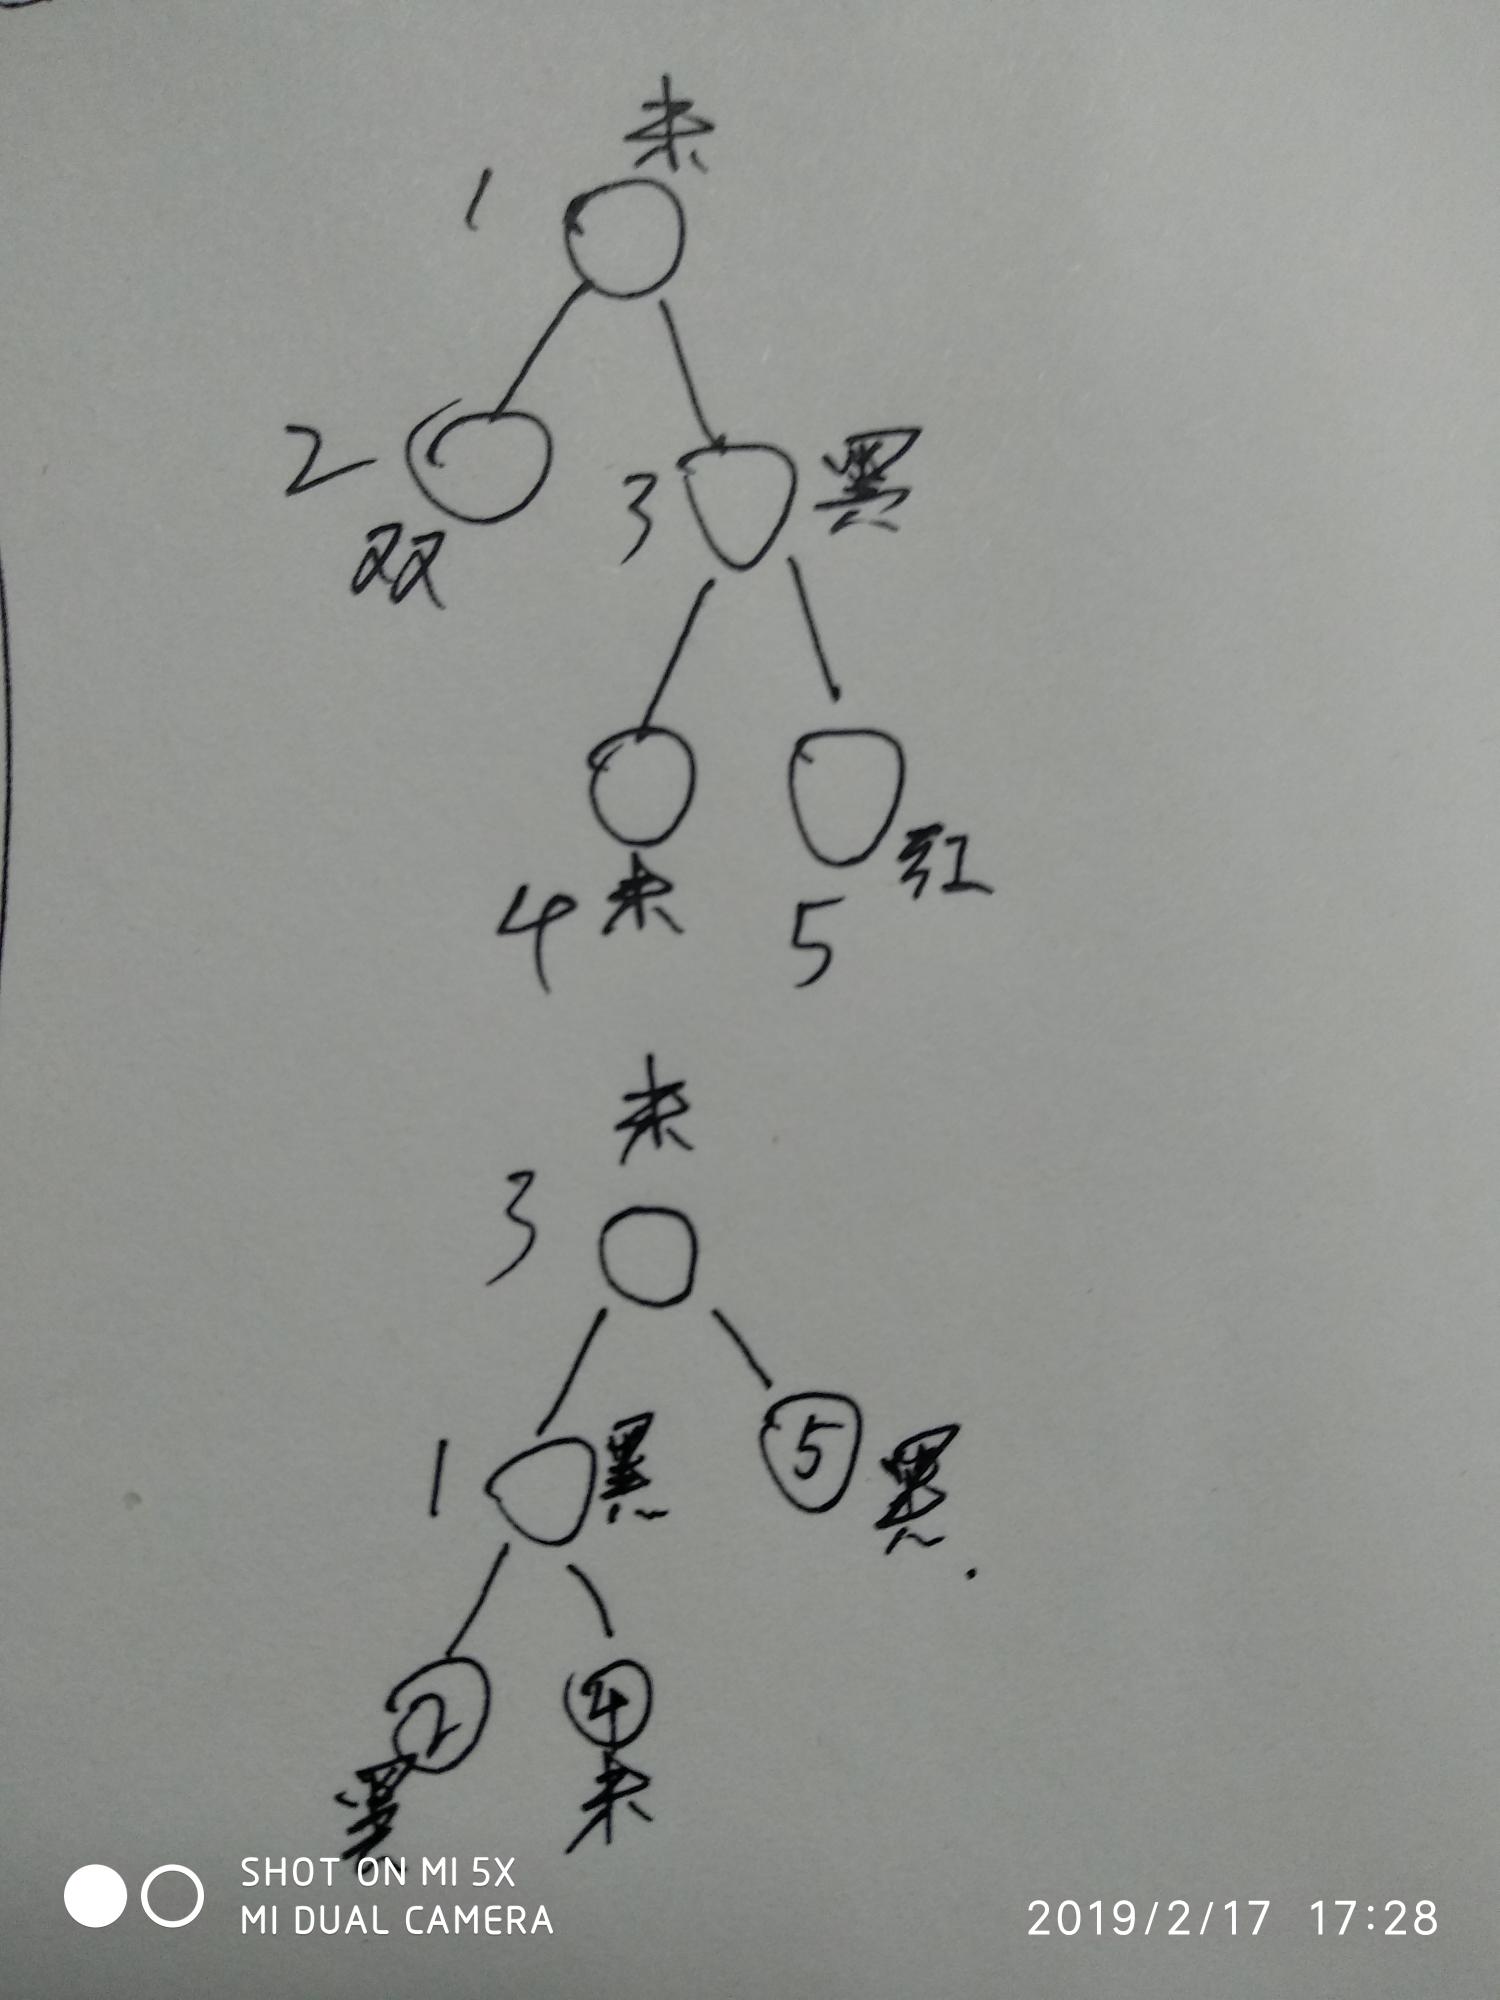 未
1
2
3 黑
双
红
4 未 5
未
3
1 黑 5 黑.
2 4
黑 未
SHOT ON MI 5X
MI DUAL CAMERA
2019/2/17 17:28